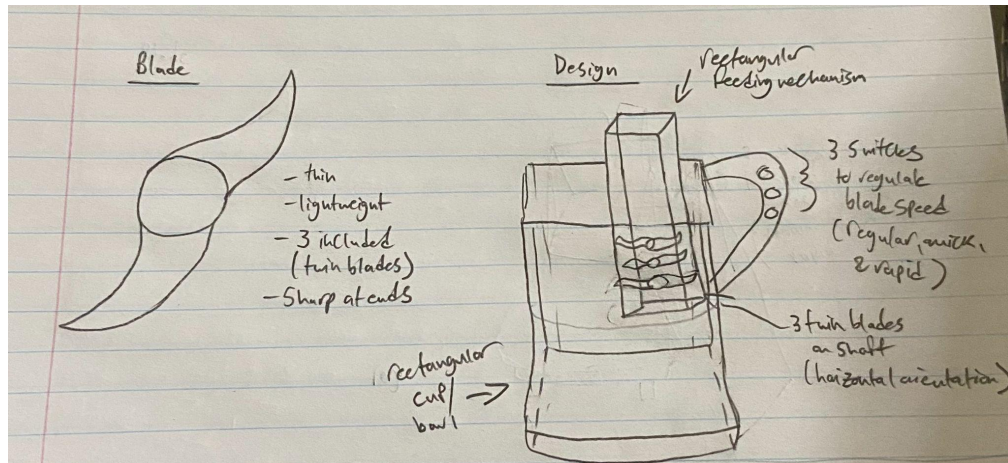 Blade
- thin
- lightweight
- 3 included
(twin blades)
- Sharp at ends
Design
rectangular
feeding mechanism
3 Switches
to regulate
blade speed
(regular, quick,
& rapid)
3 twin blades
on shaft
(horizontal orientation)
rectangular
cup/
bowl